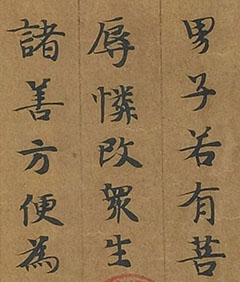 男子若有菩
辱憐改眾生
諸善方便為